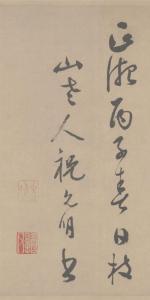 正德丙子春日枝
山老人祝允明書